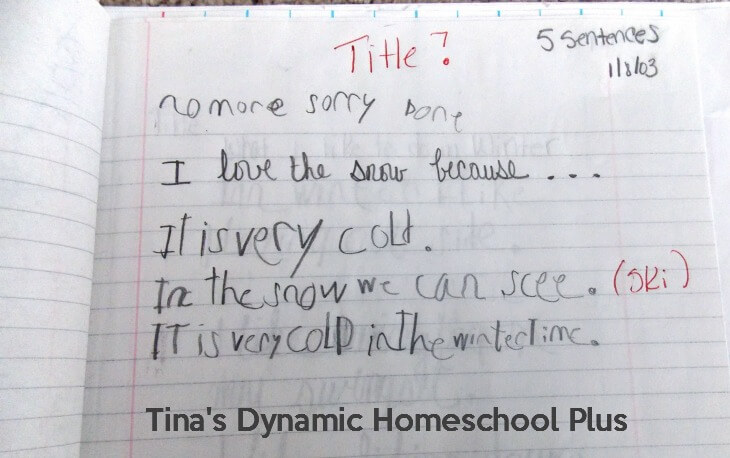 Title?
5 Sentences
1/8/03
no more sorry Done
I love the snow because ...
It is very cold.
In the snow we can scee. (ski)
IT is very colD in The winter Time.
Tina's Dynamic Homeschool Plus